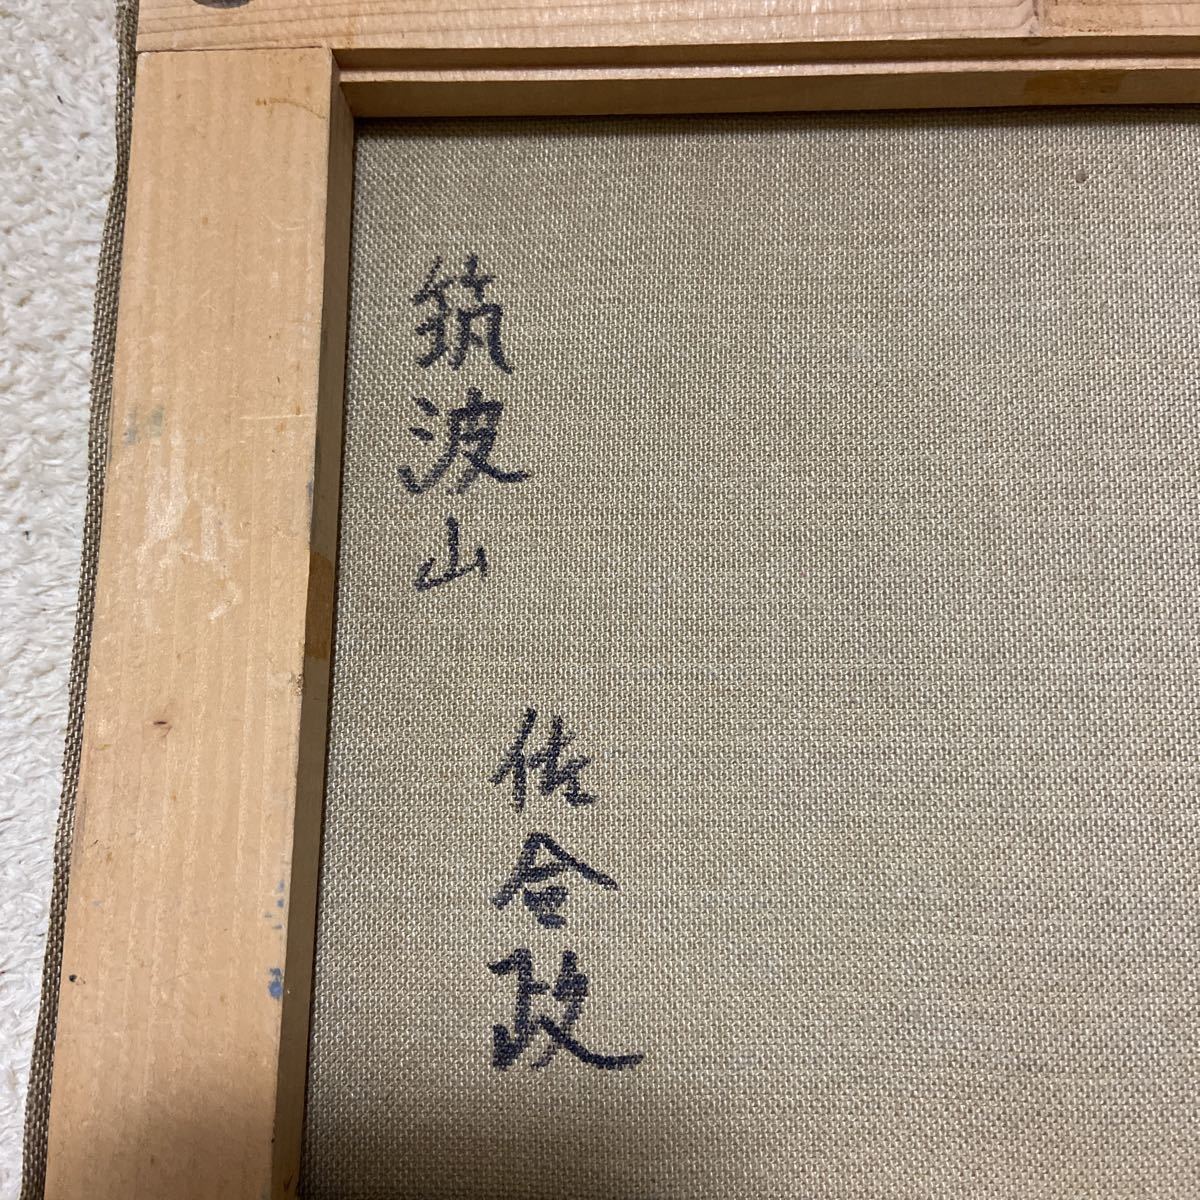 筑波山
佐令政